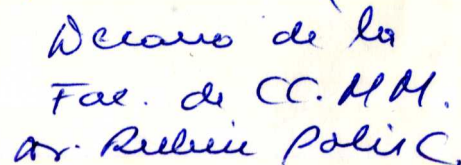 Decano de la
Fac. de CC. M M.
Dr. Rubén Solís C